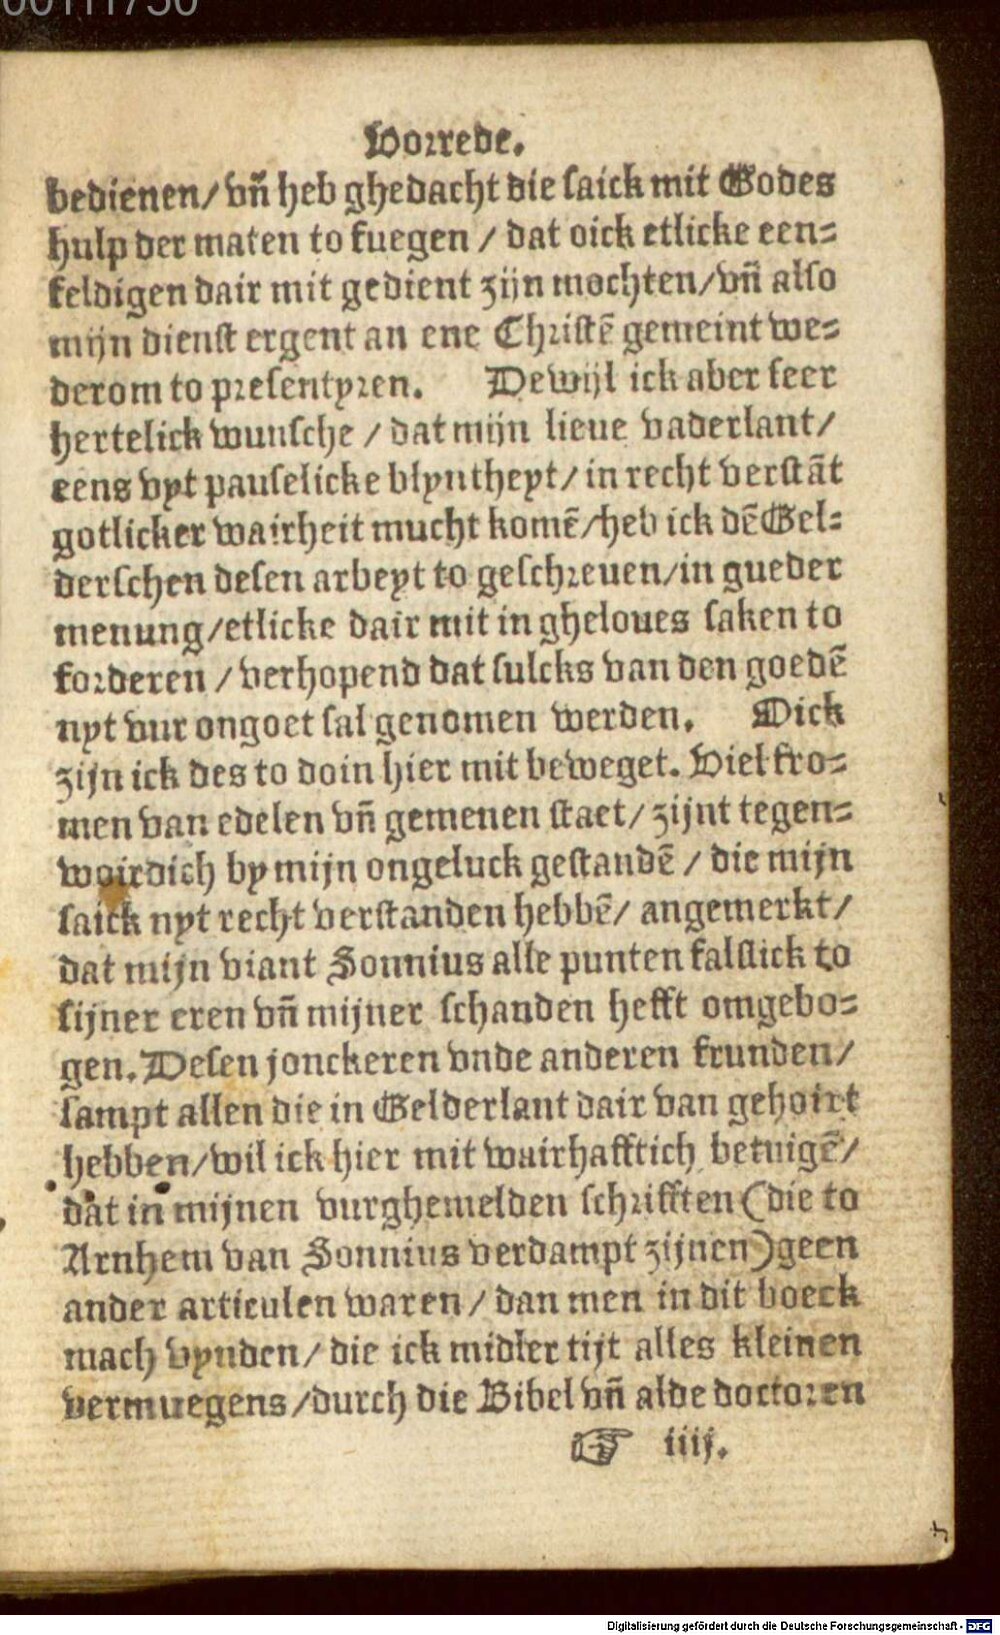 00111750
Vorrede.
bedienen/ vñ heb ghedacht die saick mit Godes
hulp der maten to fuegen / dat oick etlicke een⸗
feldigen dair mit gedient zijn mochten/ vñ also
mijn dienst ergent an ene Christẽ gemeint we⸗
derom to presentyren. Dewijl ick aber seer
hertelick wunsche / dat mijn lieue vaderlant/
eens vyt pauselicke blyntheyt/ in recht verstãt
gotlicker wairheit mucht komẽ/heb ick dẽ Gel⸗
derschen desen arbeyt to geschreuen/in gueder
menung/etlicke dair mit in gheloues saken to
forderen / verhopend dat sulcks van den goedẽ
nyt vur ongoet sal genomen werden. Oick
zijn ick des to doin hier mit beweget. Viel fro⸗
men van edelen vñ gemenen staet/ zijnt tegen⸗
woirdich by mijn ongeluck gestandẽ / die mijn
saick nyt recht verstanden hebbẽ/ angemerkt/
dat mijn viant Sonnius alle punten falslick to
sijner eren vñ mijner schanden hefft omgebo⸗
gen. Desen jonckeren vnde anderen frunden/
sampt allen die in Gelderlant dair van gehoirt
hebben/wil ick hier mit wairhafftich betuigẽ/
dat in mijnen vurghemelden schrifften (die to
Arnhem van Sonnius verdampt zijnen) geen
ander articulen waren/ dan men in dit boeck
mach vynden/ die ick midler tijt alles kleinen
vermuegens/durch die Bibel vñ alde doctoren
☞ iiij.
Digitalisierung gefördert durch die Deutsche Forschungsgemeinschaft - DFG